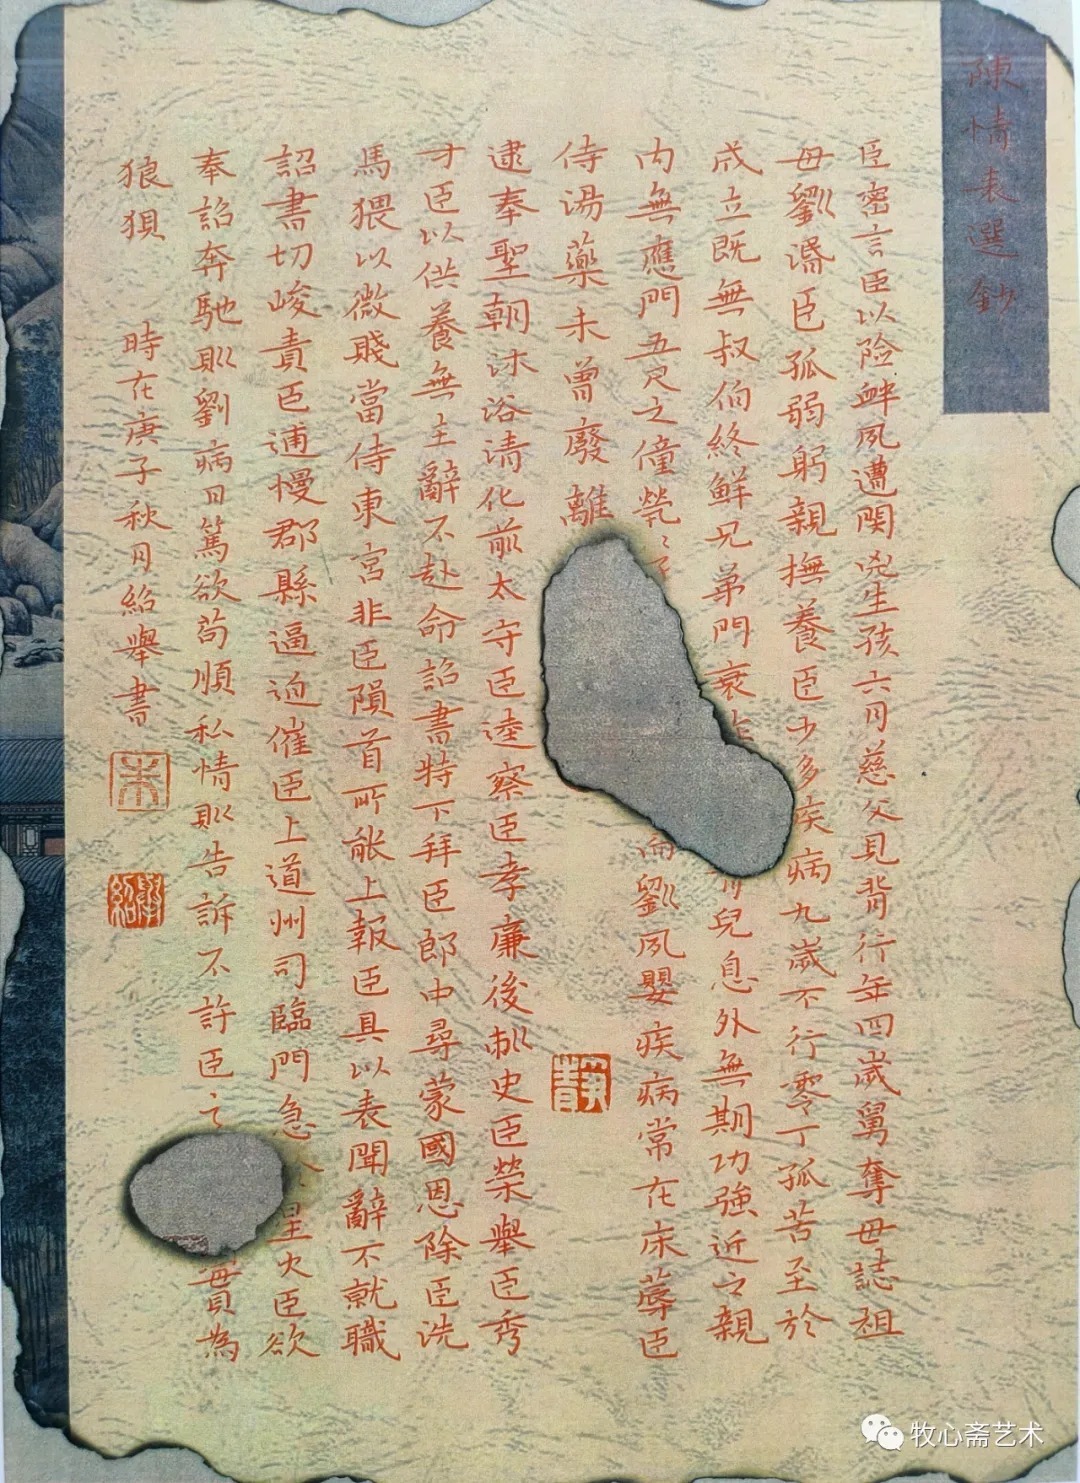 陳情表選鈔
臣密言臣以险衅夙遭閔凶生孩六月慈父見背行年四歲舅奪毋誌祖
毋劉愍臣孤弱躬親撫養臣少多疾病九歲不行零丁孤苦至於
成立既無叔伯終鮮兄弟門衰 兒息外無期功強近之親
内無應門五尺之僮煢 而劉夙嬰疾病常在床蓐臣
侍湯藥未曾廢離
逮奉聖朝沐浴清化前太守臣逵察臣孝廉後刺史臣榮舉臣秀
才臣以供養無主辭不赴命詔書特下拜臣郎中尋蒙國恩除臣洗
馬猥以微賤當侍東宮非臣隕首所能上報臣具以表聞辭不就職
詔書切峻責臣逋慢郡縣逼迫催臣上道州司臨門急 星火臣欲
奉詔奔馳則劉病日篤欲苟順私情則告訴不許臣之 實為
狼狽 時在庚子秋月紹舉書
牧心斋艺术